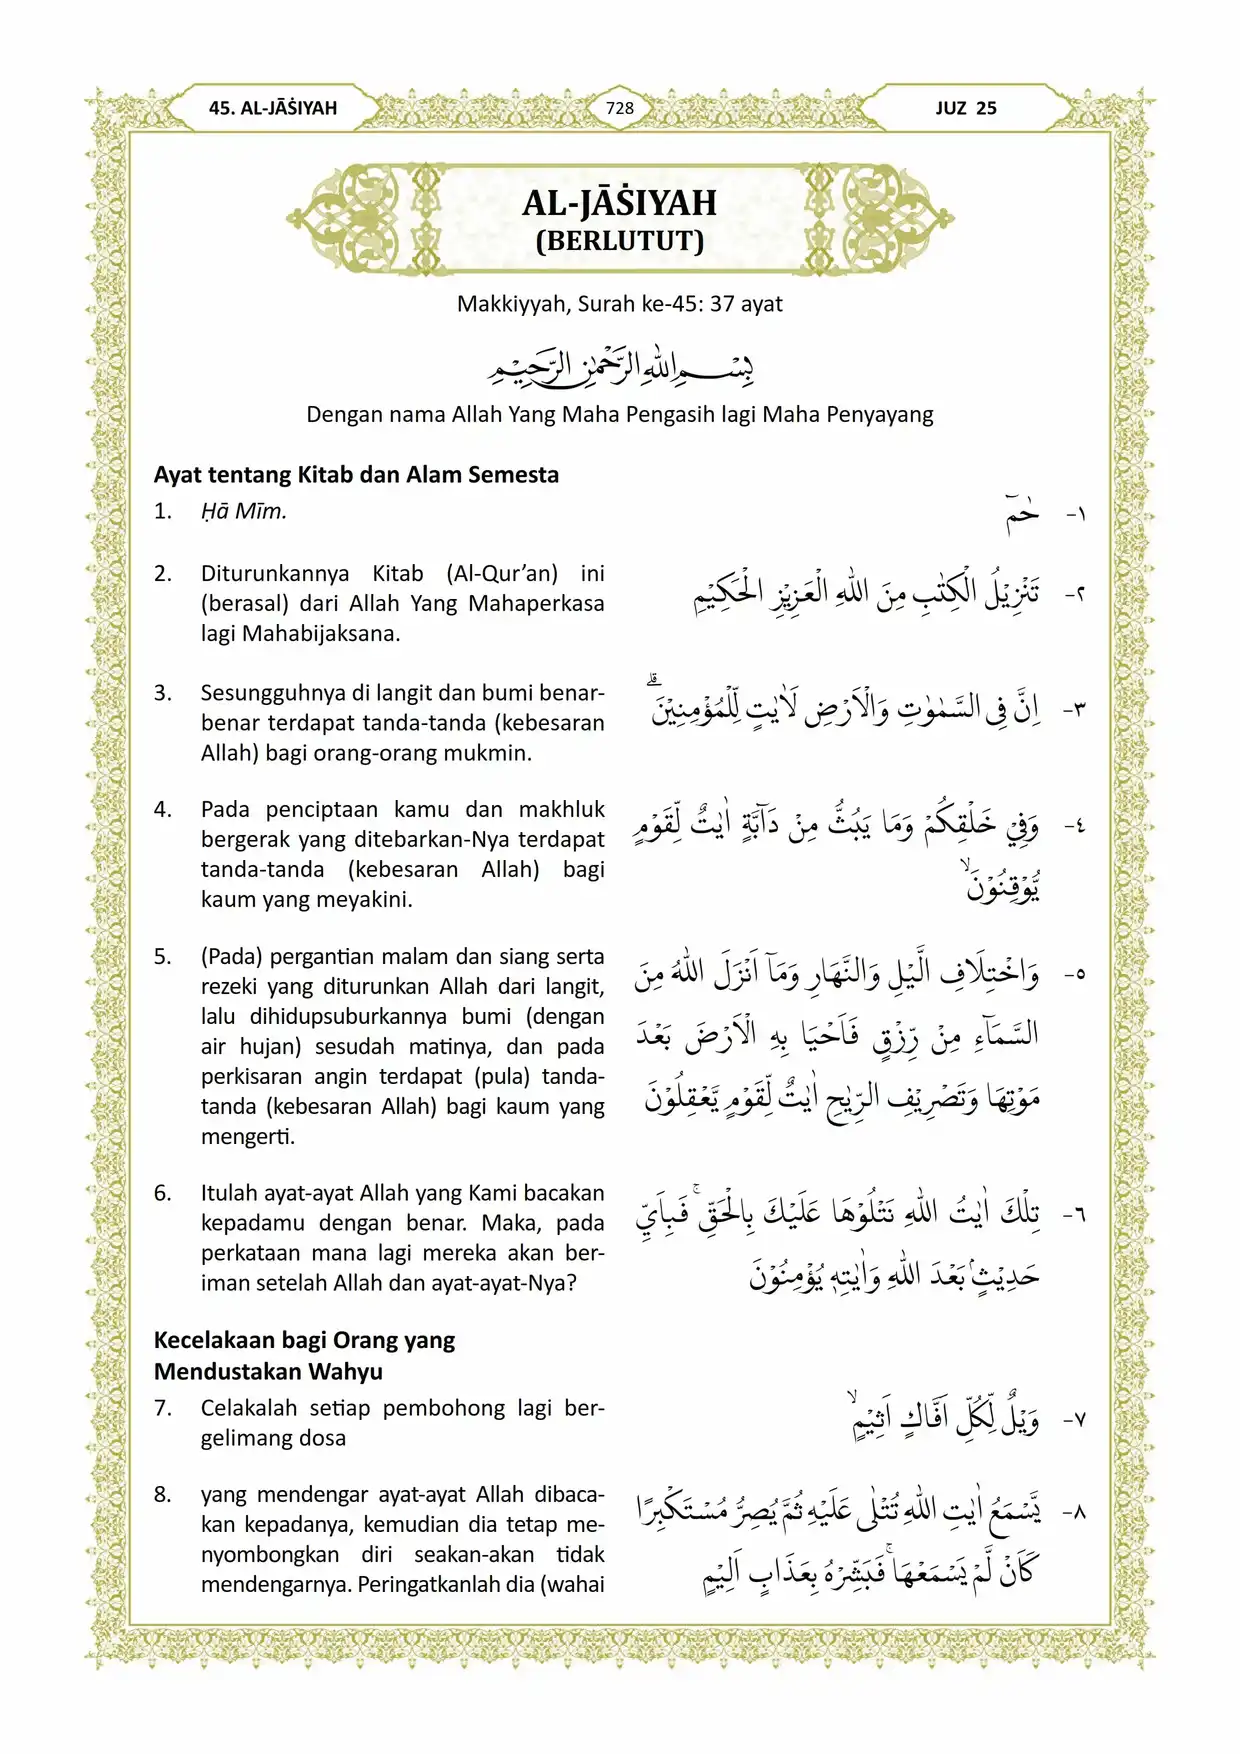 45. AL-JĀṠIYAH
728
JUZ 25
AL-JĀṠIYAH
(BERLUTUT)
Makkiyyah, Surah ke-45: 37 ayat
بِسْمِ اللّٰهِ الرَّحْمٰنِ الرَّحِيْمِ
Dengan nama Allah Yang Maha Pengasih lagi Maha Penyayang
Ayat tentang Kitab dan Alam Semesta
1. Ḥā Mīm.
١- حٰمۤ
2. Diturunkannya Kitab (Al-Qur’an) ini
(berasal) dari Allah Yang Mahaperkasa
lagi Mahabijaksana.
٢- تَنْزِيْلُ الْكِتٰبِ مِنَ اللّٰهِ الْعَزِيْزِ الْحَكِيْمِ
3. Sesungguhnya di langit dan bumi benar-
benar terdapat tanda-tanda (kebesaran
Allah) bagi orang-orang mukmin.
٣- اِنَّ فِى السَّمٰوٰتِ وَالْاَرْضِ لَاٰيٰتٍ لِّلْمُؤْمِنِيْنَۗ
4. Pada penciptaan kamu dan makhluk
bergerak yang ditebarkan-Nya terdapat
tanda-tanda (kebesaran Allah) bagi
kaum yang meyakini.
٤- وَفِيْ خَلْقِكُمْ وَمَا يَبُثُّ مِنْ دَاۤبَّةٍ اٰيٰتٌ لِّقَوْمٍ
يُّوْقِنُوْنَۙ
5. (Pada) pergantian malam dan siang serta
rezeki yang diturunkan Allah dari langit,
lalu dihidupsuburkannya bumi (dengan
air hujan) sesudah matinya, dan pada
perkisaran angin terdapat (pula) tanda-
tanda (kebesaran Allah) bagi kaum yang
mengerti.
٥- وَاخْتِلَافِ الَّيْلِ وَالنَّهَارِ وَمَآ اَنْزَلَ اللّٰهُ مِنَ
السَّمَاۤءِ مِنْ رِّزْقٍ فَاَحْيَا بِهِ الْاَرْضَ بَعْدَ
مَوْتِهَا وَتَصْرِيْفِ الرِّيٰحِ اٰيٰتٌ لِّقَوْمٍ يَّعْقِلُوْنَ
6. Itulah ayat-ayat Allah yang Kami bacakan
kepadamu dengan benar. Maka, pada
perkataan mana lagi mereka akan ber-
iman setelah Allah dan ayat-ayat-Nya?
٦- تِلْكَ اٰيٰتُ اللّٰهِ نَتْلُوْهَا عَلَيْكَ بِالْحَقِّۚ فَبِاَيِّ
حَدِيْثٍۢ بَعْدَ اللّٰهِ وَاٰيٰتِهٖ يُؤْمِنُوْنَ
Kecelakaan bagi Orang yang
Mendustakan Wahyu
7. Celakalah setiap pembohong lagi ber-
gelimang dosa
٧- وَيْلٌ لِّكُلِّ اَفَّاكٍ اَثِيْمٍۙ
8. yang mendengar ayat-ayat Allah dibaca-
kan kepadanya, kemudian dia tetap me-
nyombongkan diri seakan-akan tidak
mendengarnya. Peringatkanlah dia (wahai
٨- يَّسْمَعُ اٰيٰتِ اللّٰهِ تُتْلٰى عَلَيْهِ ثُمَّ يُصِرُّ مُسْتَكْبِرًا
كَاَنْ لَّمْ يَسْمَعْهَاۚ فَبَشِّرْهُ بِعَذَابٍ اَلِيْمٍ